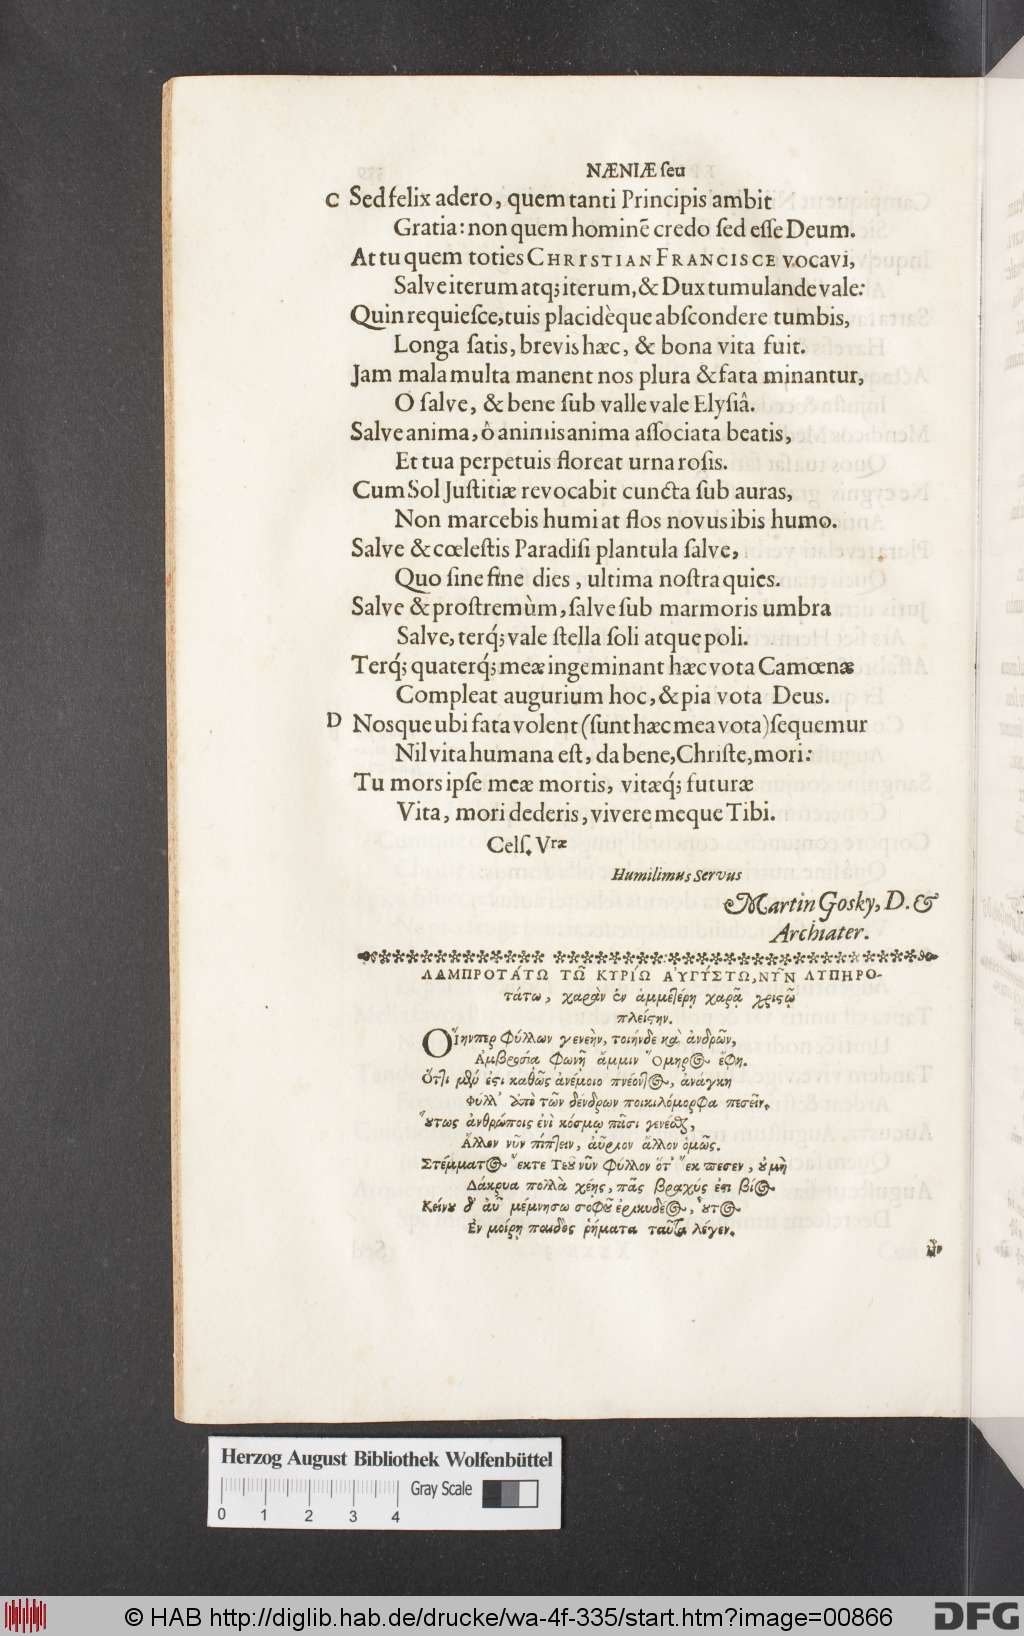 NÆNIÆ ſeu
C Sed felix adero, quem tanti Principis ambit
Gratia: non quem hominẽ credo ſed eſſe Deum.
At tu quem toties CHRISTIAN FRANCISCE vocavi,
Salve iterum atq; iterum, & Dux tumulande vale:
Quin requieſce, tuis placidèque abſcondere tumbis,
Longa ſatis, brevis hæc, & bona vita fuit.
Jam mala multa manent nos plura & fata minantur,
O ſalve, & bene ſub valle vale Elyſiâ.
Salve anima, ô animis anima aſſociata beatis,
Et tua perpetuis floreat urna roſis.
Cum Sol Juſtitiæ revocabit cuncta ſub auras,
Non marcebis humi at flos novus ibis humo.
Salve & cœleſtis Paradiſi plantula ſalve,
Quo ſine fine dies, ultima noſtra quies.
Salve & proſtremùm, ſalve ſub marmoris umbra
Salve, terq́; vale ſtella ſoli atque poli.
Terq́; quaterq́; meæ ingeminant hæc vota Camœnæ
Compleat augurium hoc, & pia vota Deus.
D Nosque ubi fata volent (ſunt hæc mea vota) ſequemur
Nil vita humana eſt, da bene, Chriſte, mori:
Tu mors ipſe meæ mortis, vitæq́; futuræ
Vita, mori dederis, vivere meque Tibi.
Celſ. Vræ
Humilimus Servus
Martin Gosky, D. &
Archiater.
ΛΑΜΠΡΟΤΑΤΩ ΤΩ͂ ΚΥΡΙΩ ΑΥΓΥΣΤΩ, ΝΥ͂Ν ΛΥΠΗΡΟ-
τάτω, χαρὰν ἐν ἀμμετέρῃ χαρᾷ χριϛῷ
πλείϛην.
Οἵηνπερ Φύλλων γενεὴν, τοιήνδε καὶ ἀνδρῶν,
Ἀμβροσία Φωνῇ ἄμμιν Ὅμηρος ἔφη.
Ὅττι μὲν ἐϛι καθῶς ἀνέμοιο πνέοντος, ἀνάγκη
Φύλλ' ἀπὸ τῶν δένδρων ποικιλόμορφα πεσεῖν.
Οὕτως ἀνθρώποις ἐνὶ κόσμῳ πᾶσι γενέσθαι,
Ἄλλον νῦν πίπτειν, αὔριον ἄλλον ὁμῶς.
Στέμματος ἔκτε Τεȣ νῦν Φύλλον ὅτ' ἔκπεσεν, ȣ μὴ
Δάκρυα πολλὰ χέῃς, πᾶς βραχύς ἐϛι βίος
Κείνȣ δ' αὖ μέμνησω σοφȣ͂ ἐρικυδέος, ȣ̔́τος
Ἐν μοίρῃ παιδὸς ῥήματα ταῦτα λέγεν.
Herzog August Bibliothek Wolfenbüttel
Gray Scale
0 1 2 3 4
© HAB http://diglib.hab.de/drucke/wa-4f-335/start.htm?image=00866
DFG